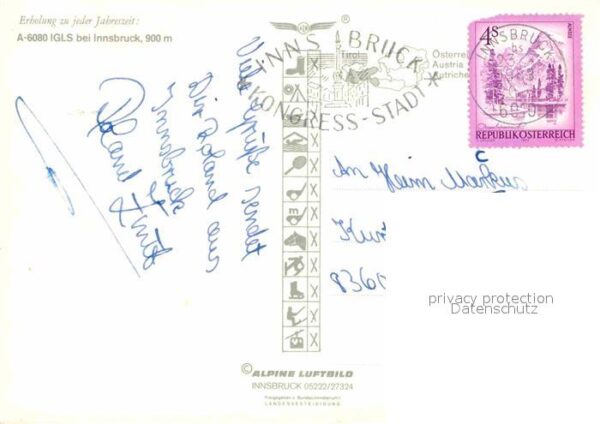 Erholung zu jeder Jahreszeit:
A-6080 IGLS bei Innsbruck, 900 m
Viele Grüße sendet
Dir Roland aus
Innsbruck
Roland
INNSBRUCK
KONGRESS-STADT
Tirol
Österrei
Austria
Autriche
INNSBRUCK
6020
4S
REPUBLIK ÖSTERREICH
An Heim Markus
C
Kur
8360
privacy protection
Datenschutz
© ALPINE LUFTBILD
INNSBRUCK 05222/27324
Freigegeben v. Bundesministerium f.
LANDESVERTEIDIGUNG